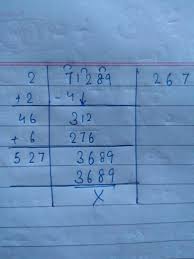 2 71289 267
+2 -4↓
46 312
+6 276
527 3689
3689
X